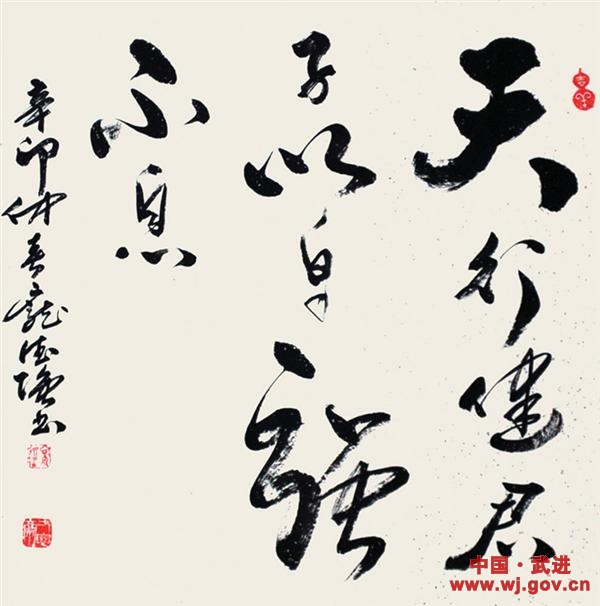 天行健君
子以自强
不息
辛卯仲春
中国·武进
www.wj.gov.cn